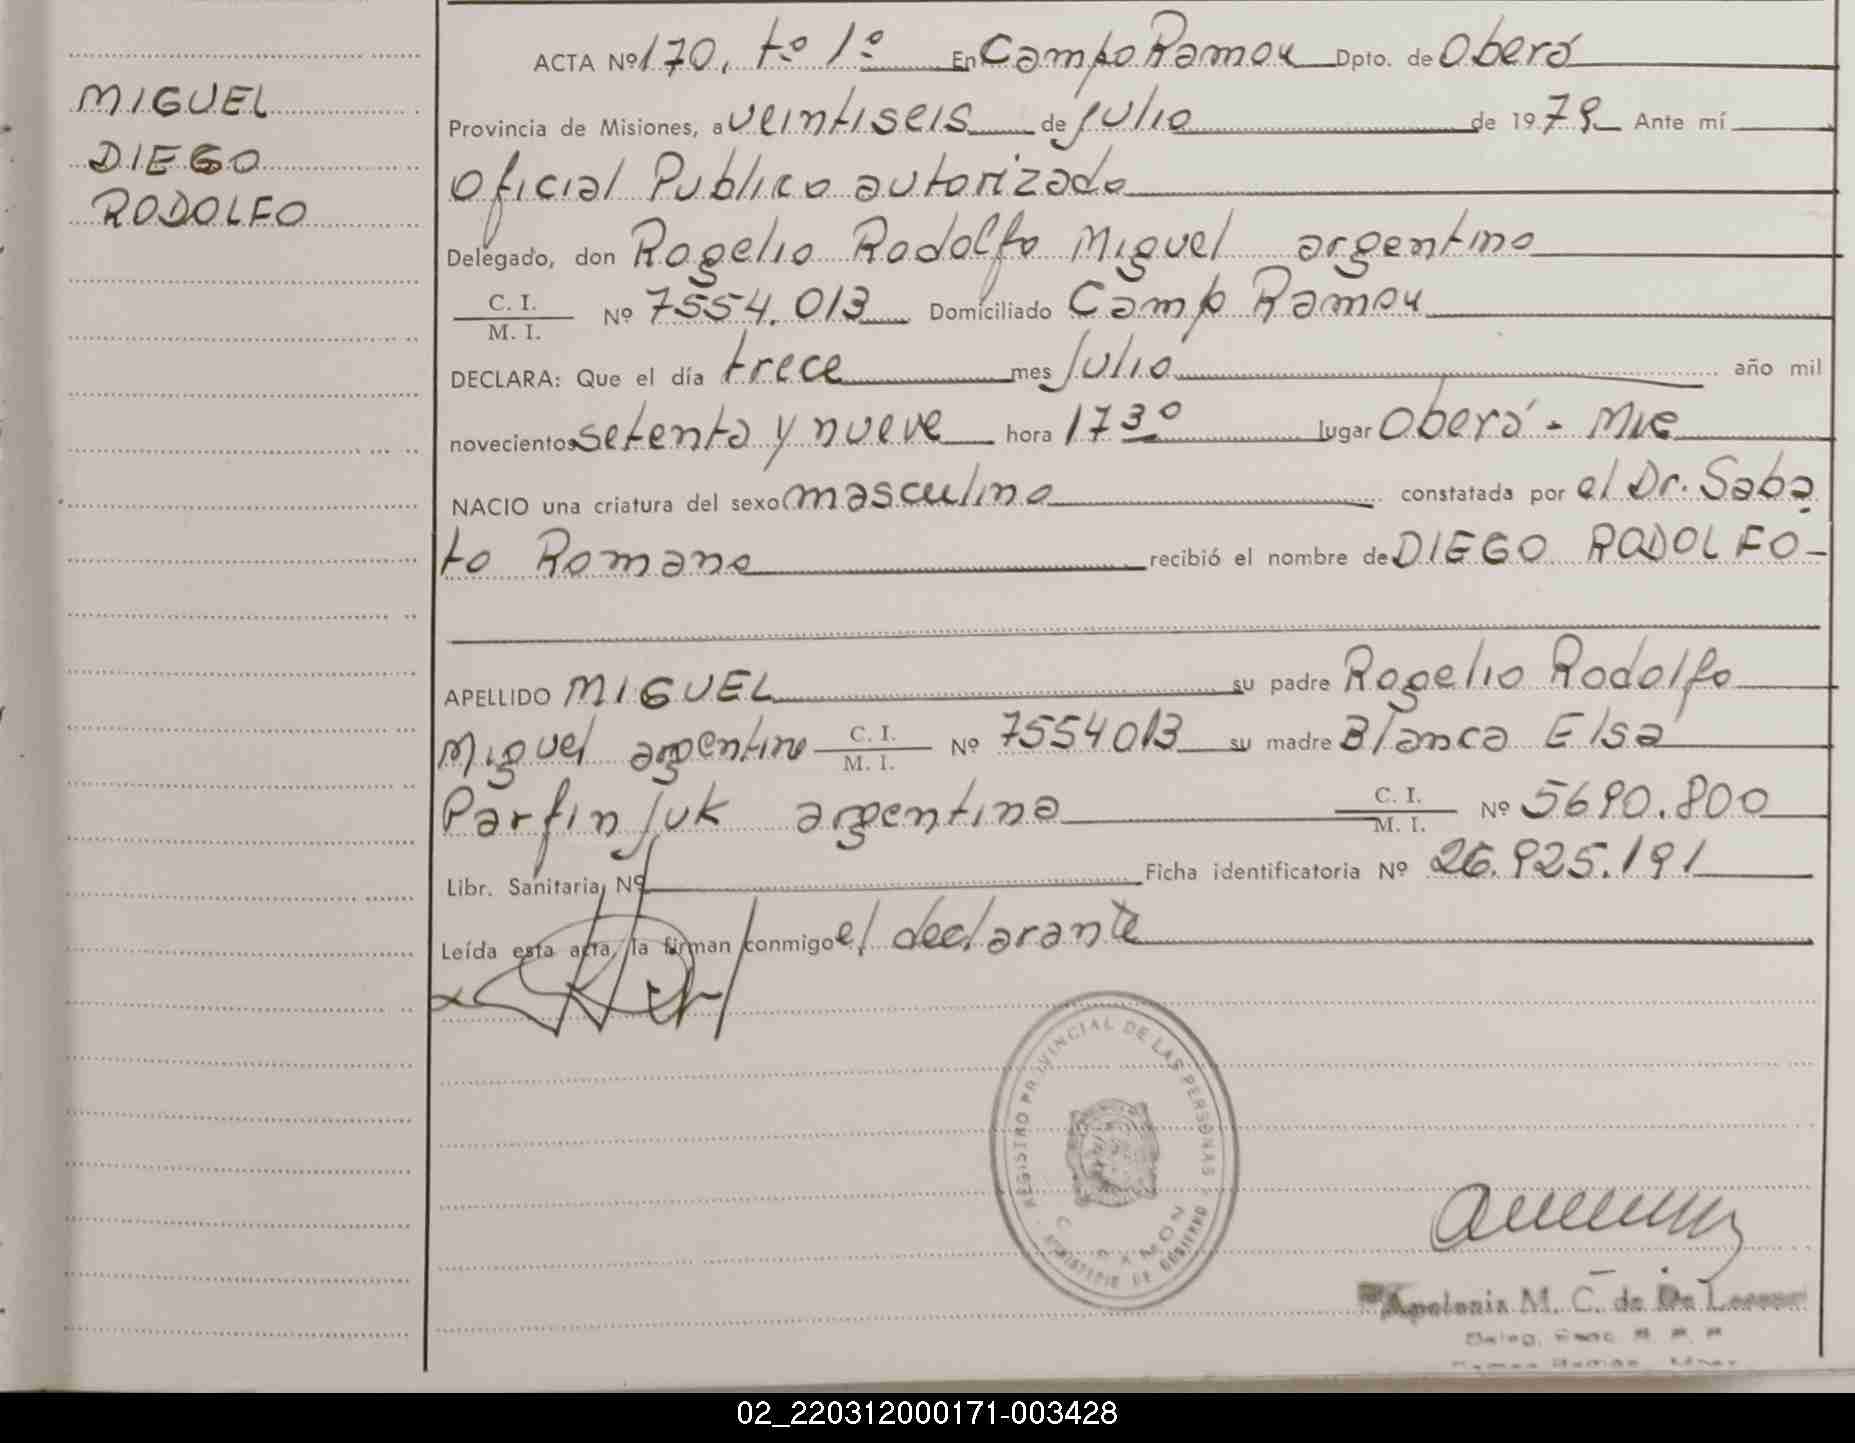 MIGUEL
DIEGO
RODOLFO
ACTA Nº 170, tº 1º En Campo Ramon Dpto. de Oberá
Provincia de Misiones, a veintiseis de julio de 1979 Ante mí
Oficial Publico autorizado
Delegado, don Rogelio Rodolfo Miguel argentino
C. I.
M. I. Nº 7554.013 Domiciliado Campo Ramon
DECLARA: Que el día trece mes Julio año mil
novecientos setenta y nueve hora 17 30 lugar Oberá - Mnes
NACIO una criatura del sexo masculino constatada por el Dr. Saba
to Romano recibió el nombre de DIEGO RODOLFO -
APELLIDO MIGUEL su padre Rogelio Rodolfo
Miguel argentino C. I. M. I. Nº 7554013 su madre Blanca Elsa
Parfinjuk argentina C. I. M. I. Nº 5690.800
Libr. Sanitaria, Nº Ficha identificatoria Nº 26.925.191
Leída esta acta, la firman conmigo el declarante
REGISTRO PROVINCIAL DE LAS PERSONAS
MINISTERIO DE GOBIERNO
Apolonia M. C. de De
02_220312000171-003428